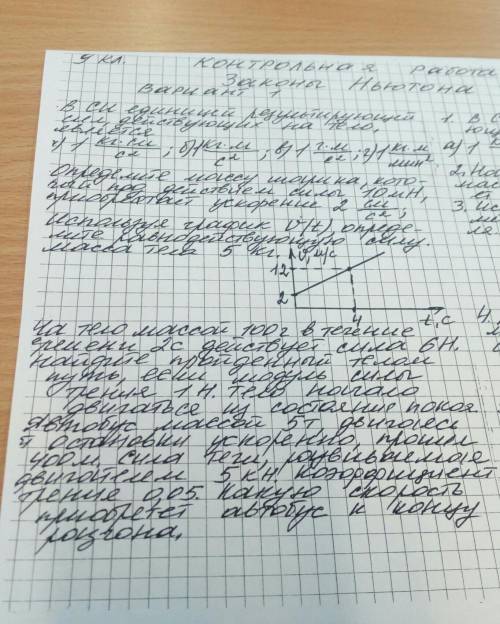 9 кл. контрольная работа
Законы Ньютона
Вариант 1
В СИ единицей результирующей
сил действующих на тело,
является
а) 1 кг·см/с²; б) 1 кг·м/с²; в) 1 г·м/с²; г) 1 кг·м/мин²
Определите массу шарика, кото-
рый под действием силы 10 мН,
приобретает ускорение 2 см/с²;
Используя график V(t), опреде-
лите равнодействующую силу.
Масса тела 5 кг.
V, м/с
12
2
4
t, с
На тело массой 100 г в течение
времени 2с действует сила 6Н.
Найдите пройденный телом
путь, если модуль силы
трения 1 Н. Тело начало
двигаться из состояния покоя
Автобус массой 5т двигаясь
остановки ускоренно, прошел
400м. сила тяги, развиваемая
двигателем 5 кН. Коэффициент
трения 0,05. Какую скорость
приобретет автобус к концу
разгона.
1. В С
а) 1
2. На
мас
3. Ис
ля
4.